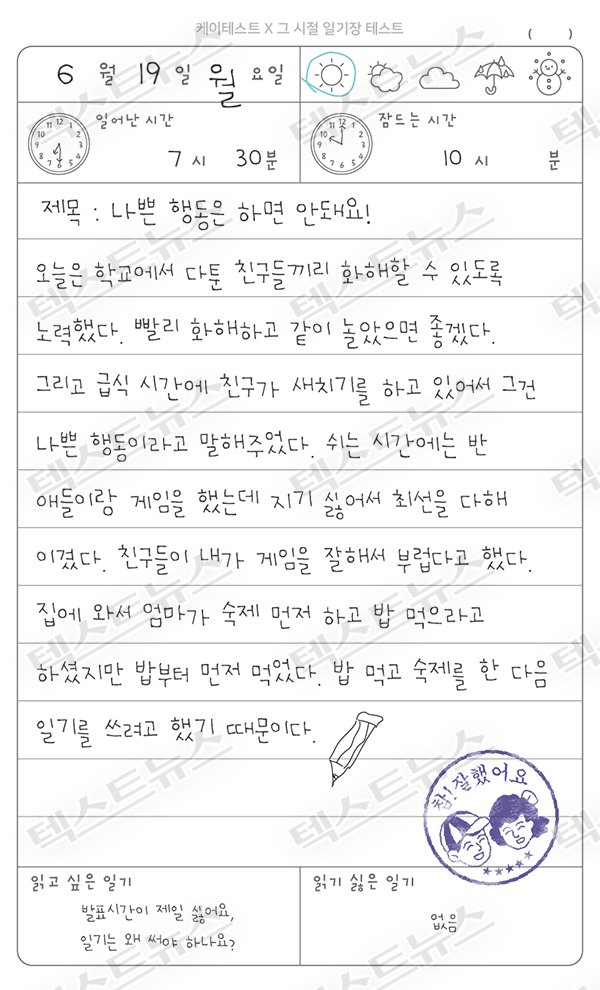 케이테스트 X 그 시절 일기장 테스트
( )
6 월 19 일 월 요일
일어난 시간
7 시 30 분
잠드는 시간
10 시 분
제목 : 나쁜 행동은 하면 안돼요!
오늘은 학교에서 다툰 친구들끼리 화해할 수 있도록
노력했다. 빨리 화해하고 같이 놀았으면 좋겠다.
그리고 급식 시간에 친구가 새치기를 하고 있어서 그건
나쁜 행동이라고 말해주었다. 쉬는 시간에는 반
애들이랑 게임을 했는데 지기 싫어서 최선을 다해
이겼다. 친구들이 내가 게임을 잘해서 부럽다고 했다.
집에 와서 엄마가 숙제 먼저 하고 밥 먹으라고
하셨지만 밥부터 먼저 먹었다. 밥 먹고 숙제를 한 다음
일기를 쓰려고 했기 때문이다.
참! 잘했어요
읽고 싶은 일기
발표시간이 제일 싫어요,
일기는 왜 써야 하나요?
읽기 싫은 일기
없음
텍스트뉴스